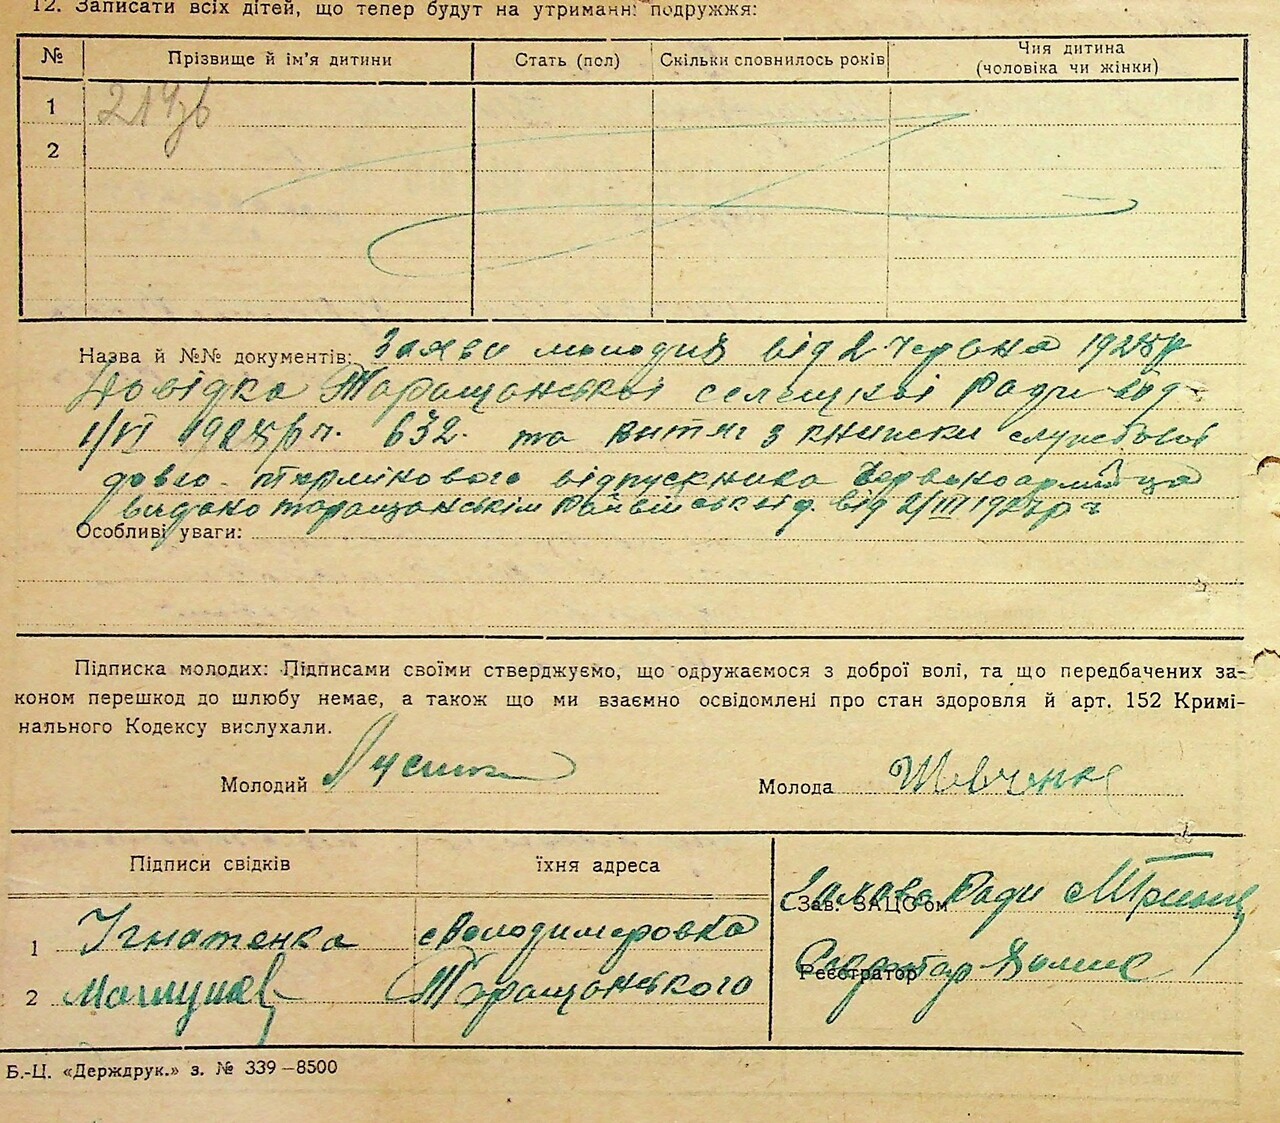 12. Записати всіх дітей, що тепер будут на утриманні подружжя:
№ Прізвище й ім'я дитини Стать (пол) Скільки сповнилось років Чия дитина
(чоловіка чи жінки)
1
2
Назва й №№ документів: Заява молодих від 2 червня 1928р
Довідка Таращанської селищної Ради від
1/VI 1928р ч. 632. та витяг з книжки службової
довго-термінового відпускника Червоноармійца
видано Таращанським Райвійськвід. від 2/III 1927р ч
Особливі уваги:
Підписка молодих: Підписами своїми стверджуємо, що одружаємося з доброї волі, та що передбачених за-
коном перешкод до шлюбу немає, а також що ми взаємно освідомлені про стан здоровля й арт. 152 Кримі-
нального Кодексу вислухали.
Молодий Молода Шевченко
Підписи свідків їхня адреса Голова Ради
Зав. ЗАЦС'ом
1 Ігнатенко Володимеровка Секретар
Реєстратор
2 Таращанського
Б.-Ц. «Держдрук.» з. № 339—8500